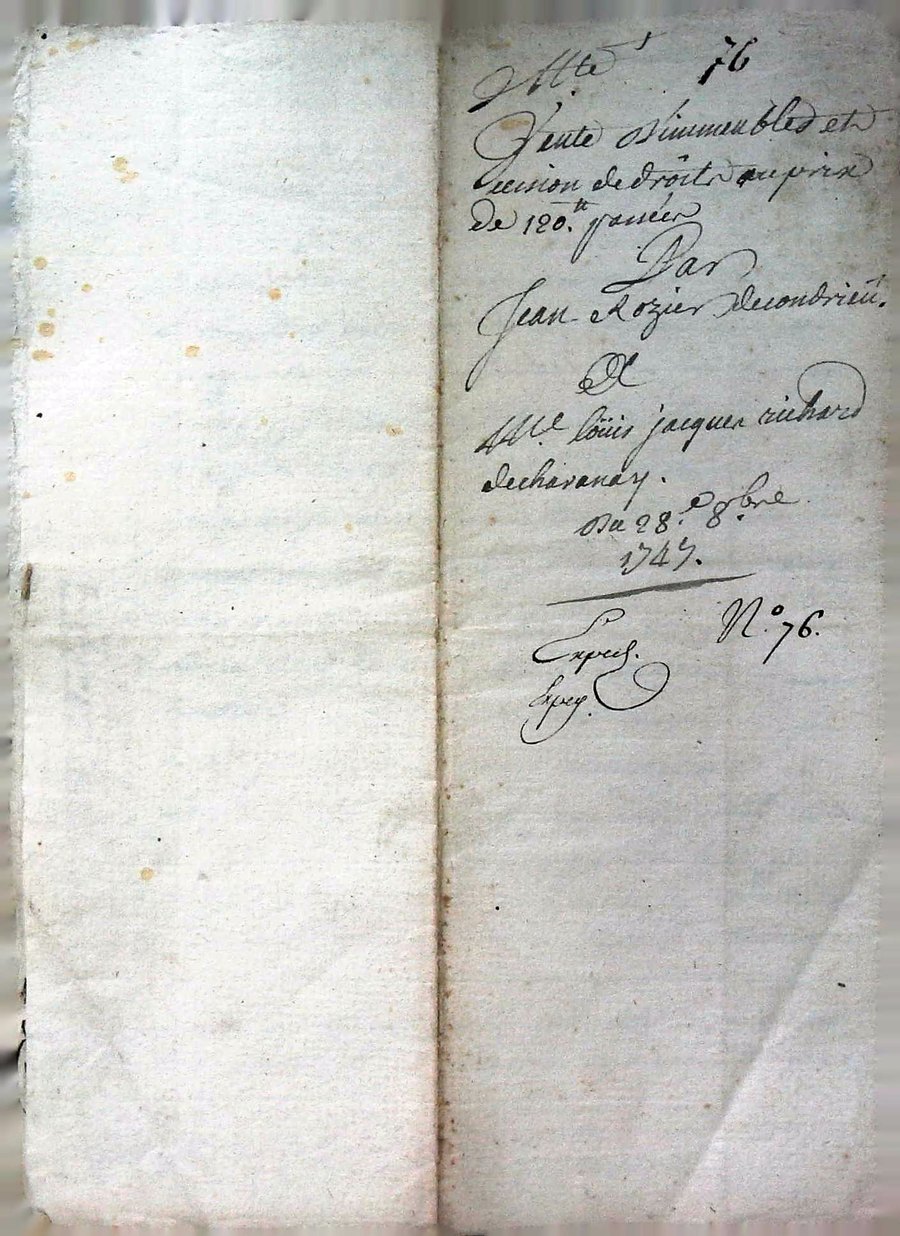 76
Vente d'immeubles et
cession de droits au prix
de 120.tt payées
Par
Jean Rozier de condrieü.
A
Me. loüis jacques richard
de chavanay.
Du 28.e 8.bre
1747.
N.o 76.
Exped.
Expéd.